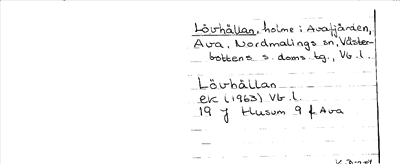 Lövhällan, holme i Avafjärden,
Ava, Nordmalings sn, Väster-
bottens s. doms. tg., Vb. l.
Lövhällan
ek (1963) Vb. l.
19 J Husum 9 f Ava